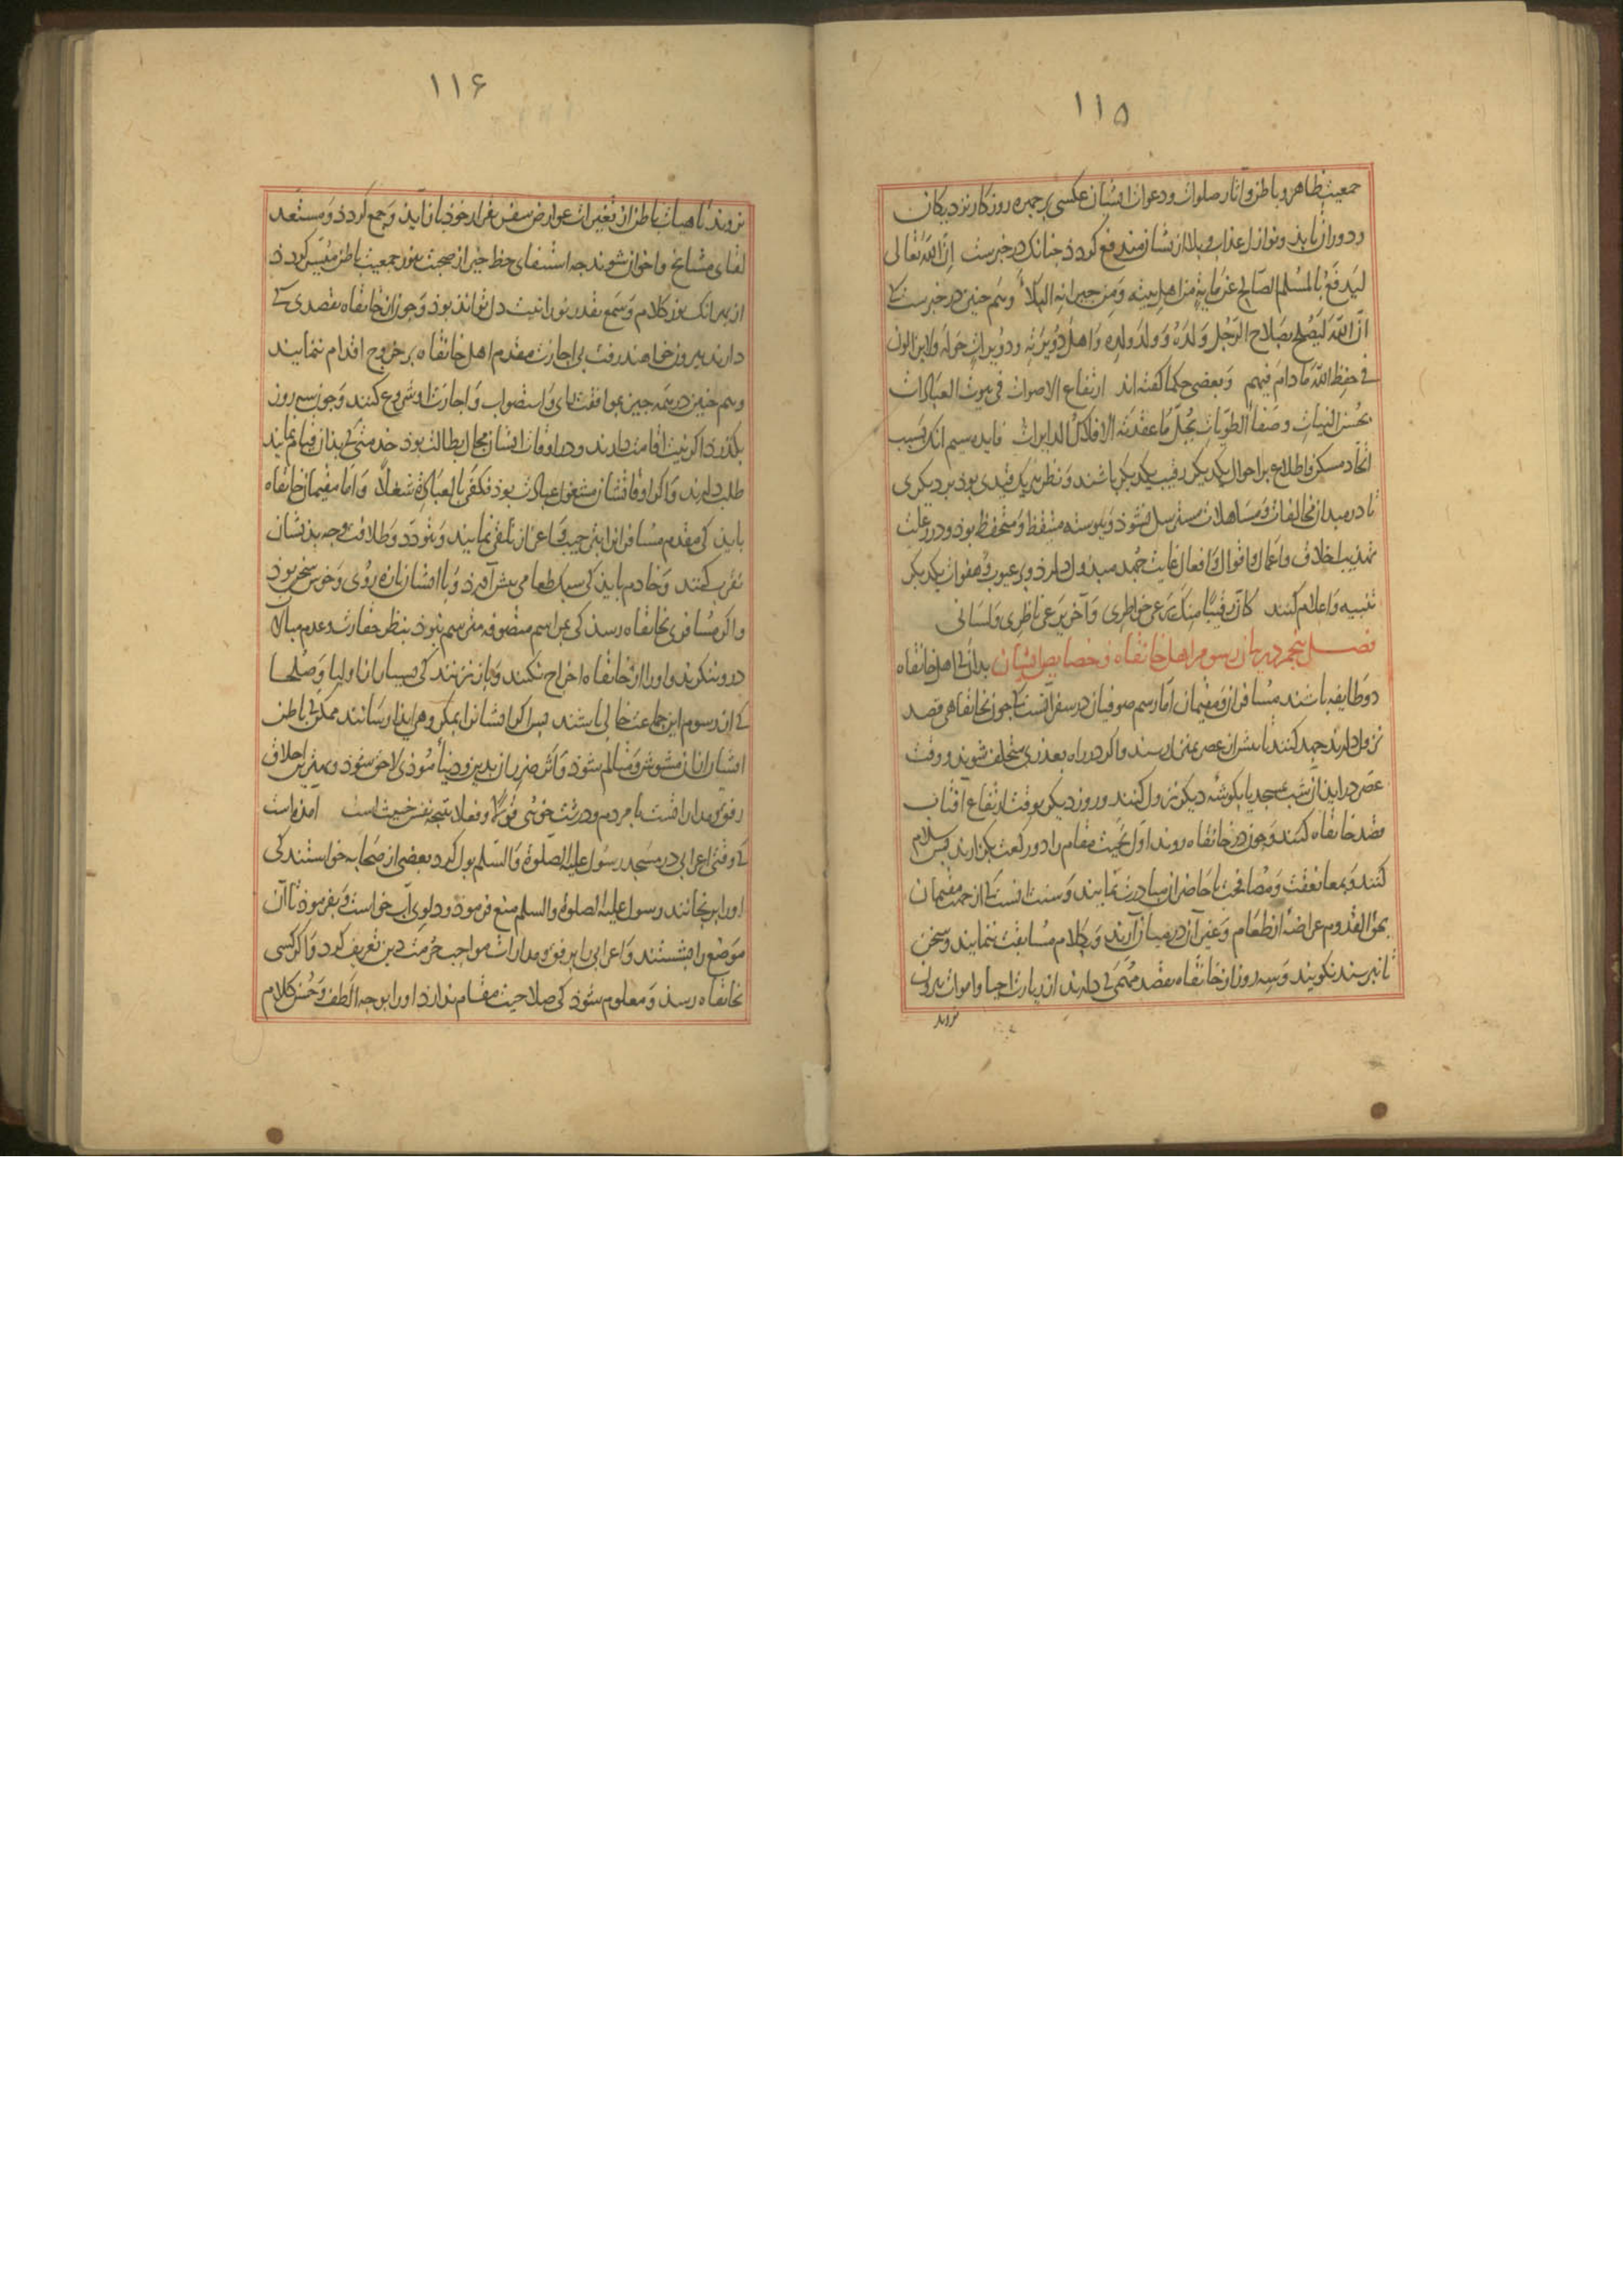 ۱۱۵
جمعیت ظاهر و باطن و آثار صلوات و دعوات ایشان عکسی بر چهره روزکار نزدیکان
و دوران تابذ و نوازل عذاب و بلا ازیشان مندفع کردد چنانک در خبرست اِنَّ اللهَ تعالی
لیَدفَعُ بالمُسلم الصّالح عَن مِایةٍ من اهل بیته وَمِن جیرانِهِ البَلاَءَ و هم چنین در خبرست کی
انّ اللهَ لَیُصلحُ بصَلاحِ الرَّجُلِ وَلَدَهُ وَوَلَدَ وَلَدِه وَاهلَ دُوَیرَتِه و دُوَیراتٍ حَولَهُ ولا یزالون
فی حِفظِ اللهِ مَا دامَ فیهم وَبعضی حکما کفته اند ارتفاع الاصوات فی بیوت العبادات
بحُسن النیّاتِ و صَفاءِ الطویّاتِ یحُلّ مَا عقدَته الافلاکُ الدایرات فایده سیم انک بسَبب
اتّحاد مسکن و اطلاع بر احوال یکدیکر رقیب یکدیکر باشند وَنظر هر یک قیدی بوذ بر دیکری
تا در میدان مخالفات وَمسَاهلات مسترسل نشوذ وَپیوسته متیقظ وَمتحفظ بوذ و در رعایت
تهذیب اخلاق و اعمال و اقوال وَافعال غایت جُهد مبذول دارد و بر عیوب وَهفوات یکدیکر
تنبیه وَاعلام کنند کانّ رقیبًا منکَ یَرعی خواطِری وَآخر یَرعی ناظِری وَلسَانی
فصـل پنجم در بیان رسوم اهل خانقاه و خصایص ایشان بدانک اهل خانقاه
دو طایفه باشند مسُافران وَمقیمان امّا رسم صوفیان در سفر آنست کی چون بخانقاهی قصد
نزول دارند جهد کنند تا پیش از عصر بمنزل رسند و اکر در راه بعذری متخلف شوند و وقت
عصر در آید آن شب بمسجد یا بکوشهٔ دیکر نزول کنند و روز دیکر بوقت ارتفاع آفتاب
قصد خانقاه کنند وَچون در خانقاه روند اول تحیت مقام را دو رکعت بکزارند پس سلام
کنند وَبمعانقت وَمصُافحت با حَاضران مبادرت نمایند وَسنت انست کی از جهت مقیمان
بحق القدوم عراضهٔ از طعَام وَغیر آن در میان آرند وَبکلام مسُابقت ننمایند وَسخن
تا نپرسند نکویند وَسه روز از خانقاه بقصد مُهمّی کی دارند از زیارت احیا و اموات بیرون
نروند
۱۱۶
نروند تا هیات باطن از تغیرات عوارض سفر بقرار خوذ باز آید وَجمع کردد وَمستعد
لقای مشایخ و اخوان شوند چه استیفای حظ خیر از صحبت بنور جمعیت باطن میُسّر کردد
از بهر انک نور کلام وَسَمع بقدر نورانیت دل تواند بوذ وَچون از خانقاه بقصدی کی
دارند بیرون خواهند رفت بی اجازت مقدم اهل خانقاه بر خروج اقدام ننمایند
وهم چنین در همه چیز بموافقت رای وَاستصواب وَاجازت او شروع کنند وَچون سه روز
بکذرد اکر نیت اقامت دارند و در اوقات ایشان مجال بطالت بوذ خدمتی کی بدان قیام نمایند
طلب دارند وَاکر اوقاتشان مشغول عبادت بوذ فکفی بالعبَادَة شغلاً وَاَمّا مقیمان خانقاه
بایذ کی مقدم مسُافران را بترحیب وَاعزاز تلقی نمایند وَبتودّد وَطلاقت وجه بدیشان
تقرب کنند وَخادم بایذ کی سبک طعامی پیش آورد وَبا ایشان تازه رُوی وَخوش سخن بوذ
و اکر مسُافری بخانقاه رسذ کی بمراسم متصوفه مترسم نبوذ بنظر حقارت و عدم مبالات
درو ننکرند و او را از خانقاه اخراج نکنند وَباز نزنند کی بسیار از اولیا وَصُلحا
کی از رسوم این جماعت خالی باشند پس اکر ایشان را بمکروهی ایذا رسانند ممکن کی باطن
ایشان از ان مشوش وَمتالم شوذ وَاثر ضرر آن بدین و دنیاء مُوذی لاحق شوذ و بهترین اخلاق
رفق و مداراتست با مردم و درشت خویی قَولاً و فعلا نتیجه نفس خبیث است آمذه است
کی وقتی اعرابی در مسَجد رسَول علیه الصلوة وَالسّلم بول کرد بعضی از صَحابه خواستند کی
او را برنجانند رسول علیه الصلوة والسلم منع فرموذ و دلوی آب خواست وَبفرموذ تا آن
مَوضع را بشستند وَاعرابی را برفق و مدارات مواجب حُرمت دین تعریف کرد وَاکر کسی
بخانقاه رسذ وَمعلوم شوذ کی صلاحیت مقام ندارد او را بوجه الطف وَحُسن کلام